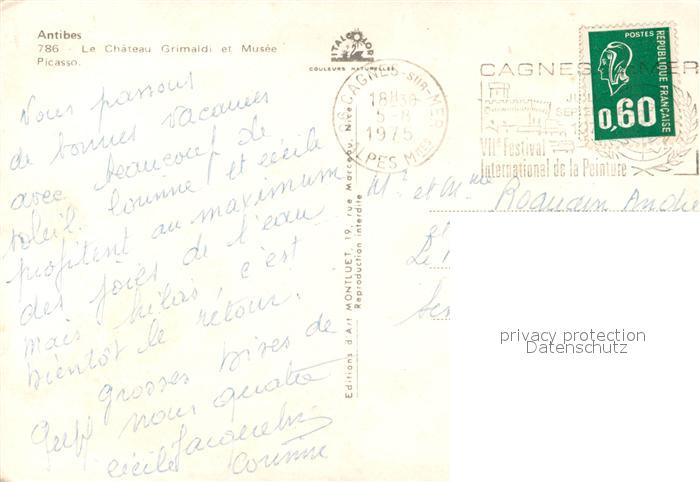 Antibes
786 - Le Château Grimaldi et Musée
Picasso.
ITALCOLOR
COULEURS NATURELLES
Nous passons
de bonnes vacances
avec beaucoup de
soleil. Corinne et Cécile
profitent au maximum
des joies de l'eau
mais hélas, c'est
bientôt le retour.
Grosses bises de
nous quatre
Cécile Corinne
Editions d'Art MONTLUET, 19, rue Marceau, Nice
Reproduction interdite
CAGNES-SUR-MER
18H30
5-8
1975
ALPES Mmes
CAGNES MER
VIIe Festival
International de la Peinture
POSTES
REPUBLIQUE FRANÇAISE
0,60
Mr et Mme André
et
privacy protection
Datenschutz